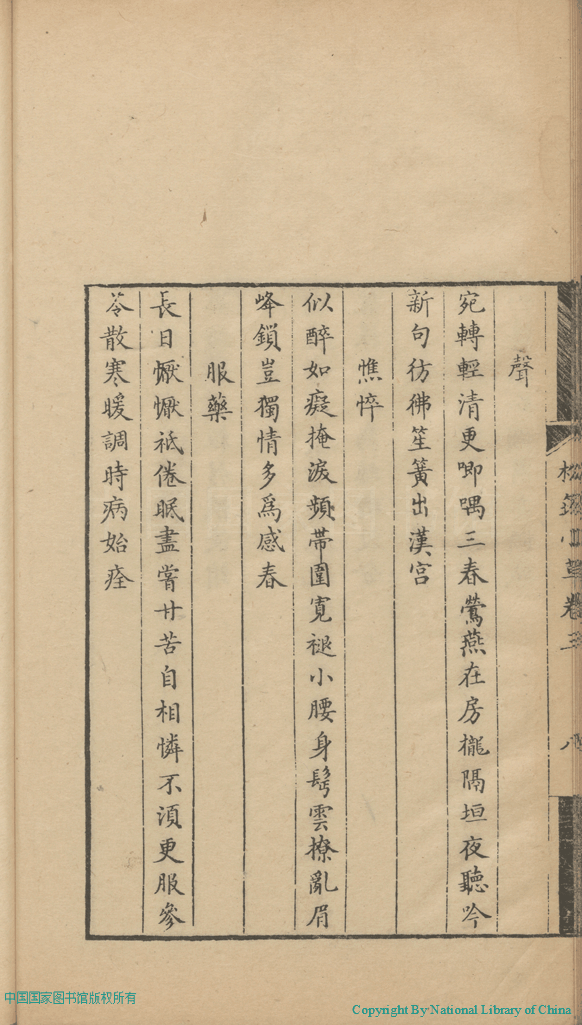 卷三
聲
宛轉輕清更唧喁三春鶯燕在房櫳隔垣夜聽吟
新句彷彿笙簧出漢宮
憔悴
似醉如癡掩淚頻帶圍寬褪小腰身髩雲撩亂眉
峰鎖豈獨情多爲感春
服藥
長日懨懨祗倦眠盡甞甘苦自相憐不湏更服參
苓散寒暖調時病始痊
中国国家图书馆版权所有
Copyright By National Library of China